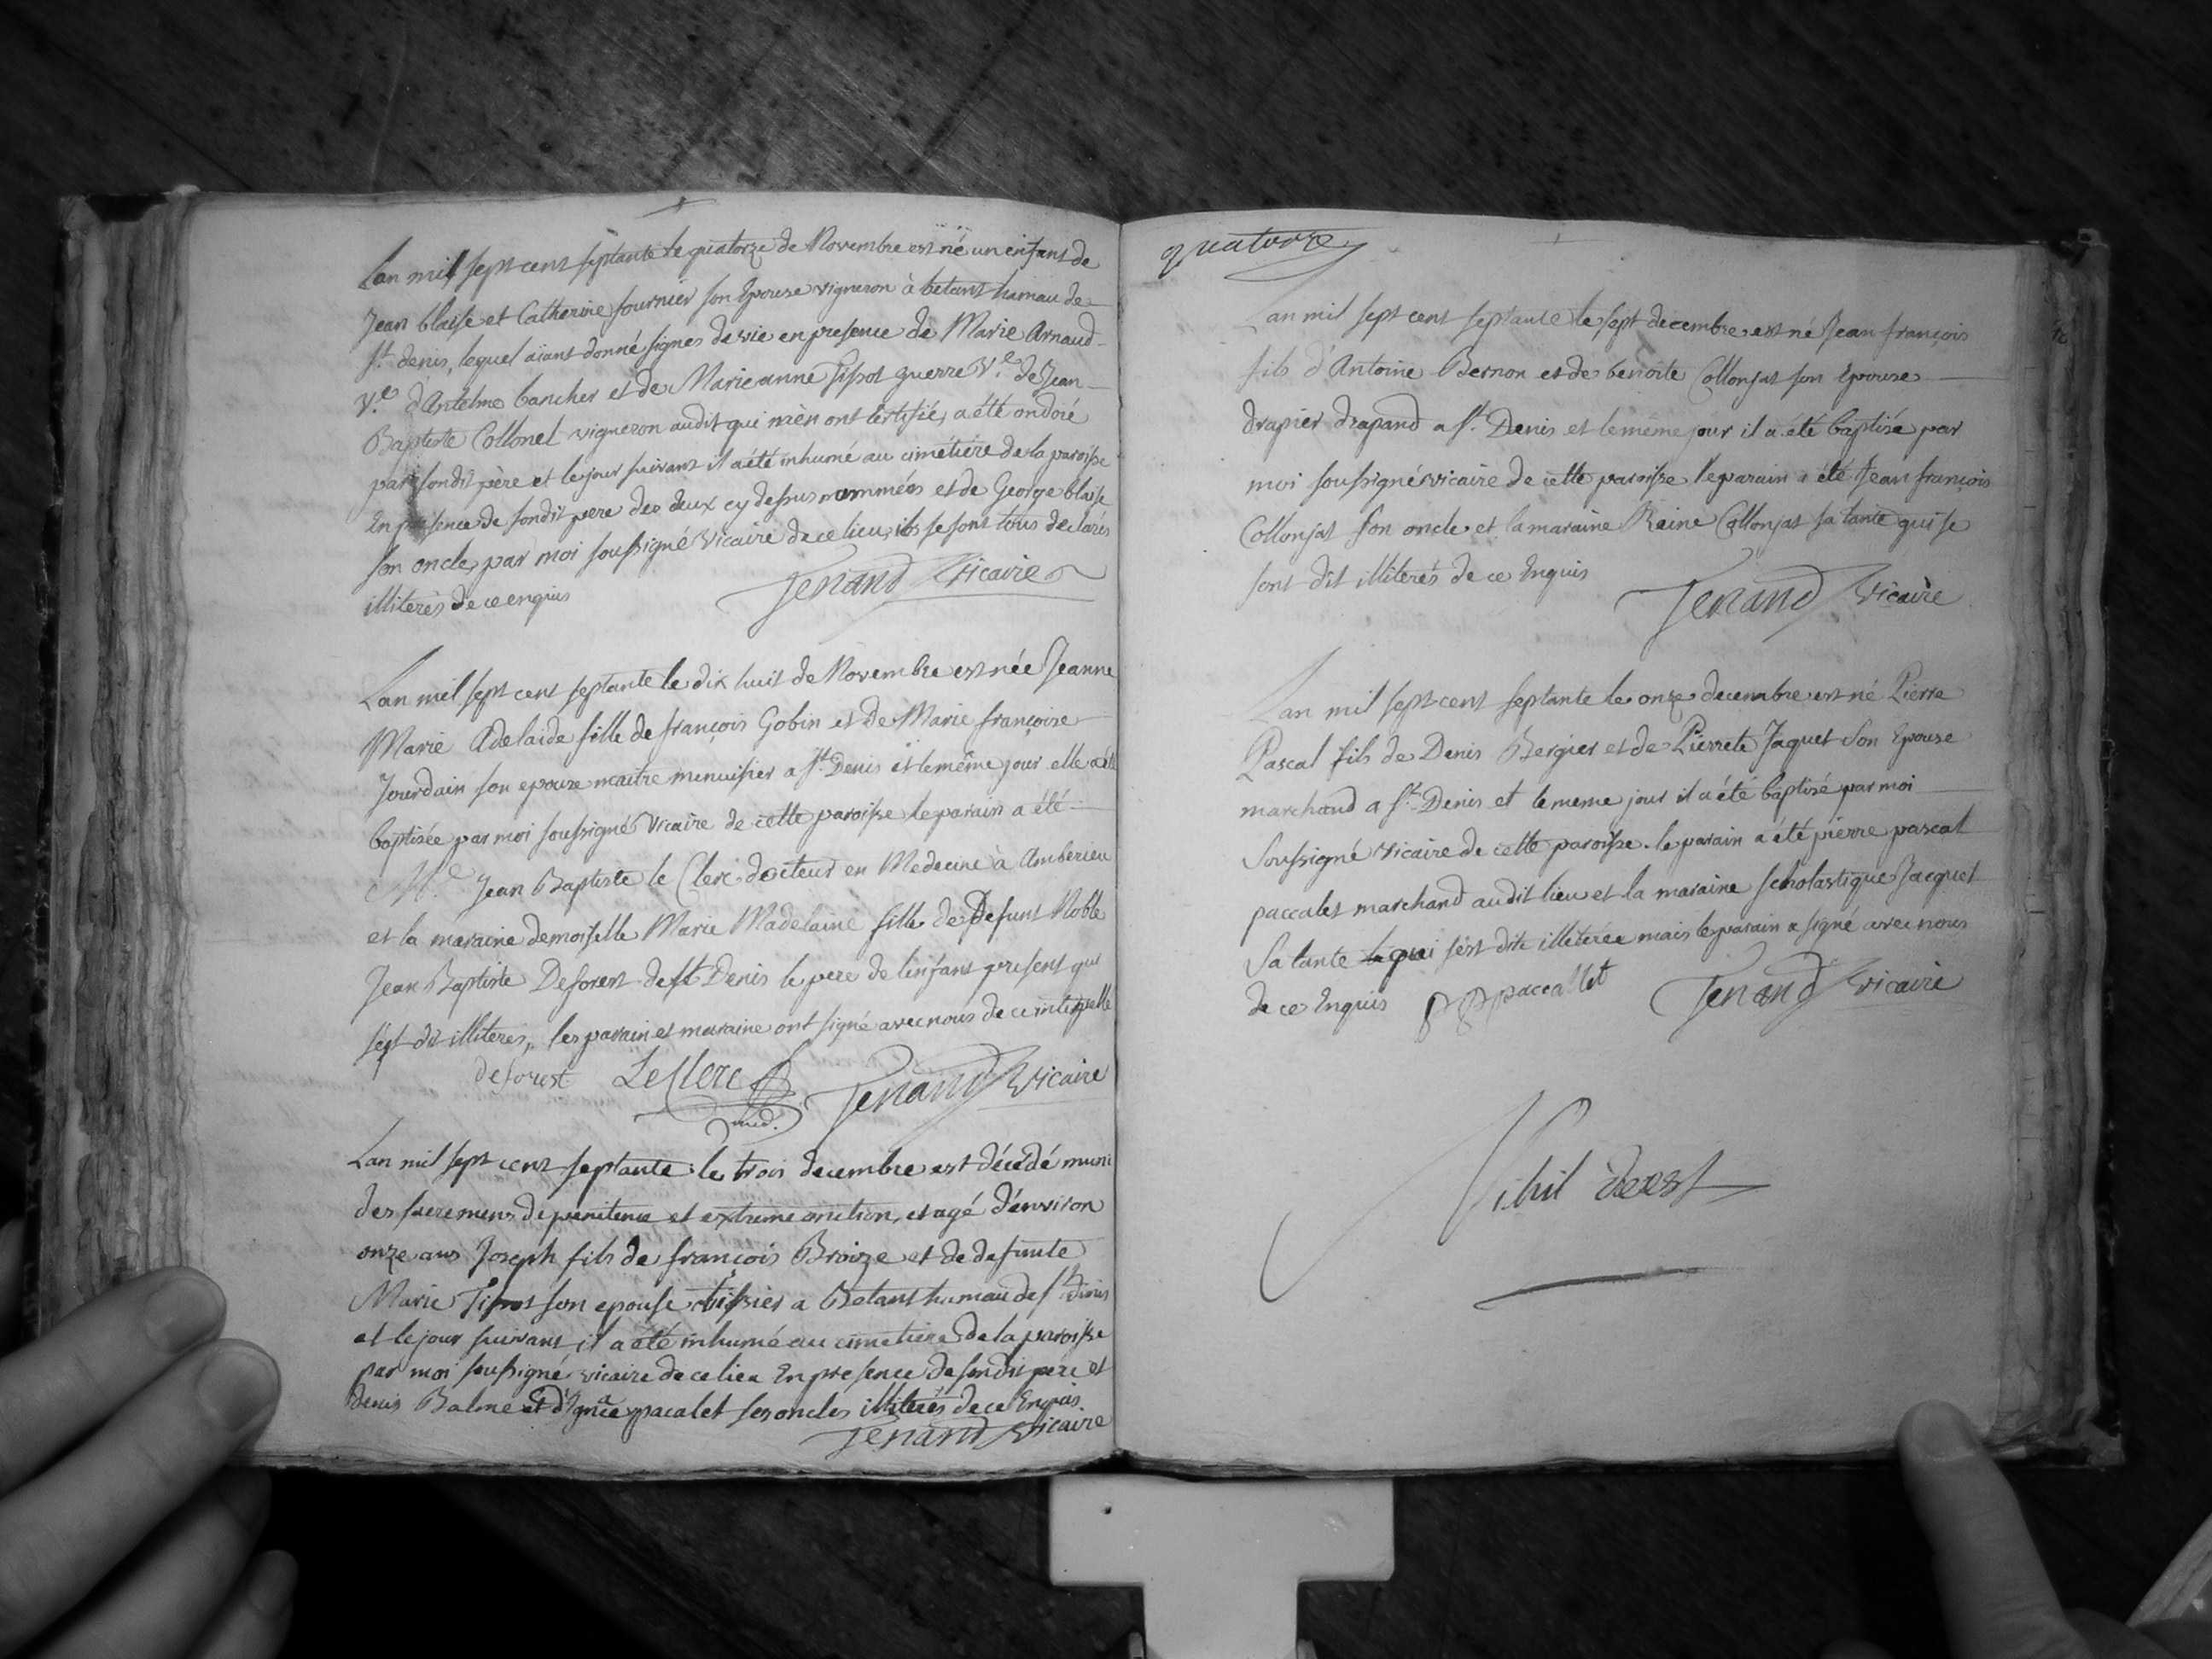 Lan mil sept cent septante le quatorze de Novembre est né un enfant de
Jean blaise et Catherine fournier son Epouse vigneron à betant hamau de
St. denis, lequel aïant donné signes de vie en presence de Marie Arnaud
Ve. d'Antelme bancher et de Marie anne guerre Ve. de Jean
Baptiste Collonel vigneron audit qui m'en ont certifié, a été ondoïé
par sondit père et le jour suivant il a été inhumé au cimétière de la paroisse
En presence de sondit pere des deux cy dessus nommées et de George blaise
son oncle, par moi soussigné Vicaire de ce lieu, ils se sont tous declarés
illiterés de ce enquis
Jenand Vicaire
Lan mil sept cent septante le dix huit de Novembre est née Jeanne
Marie Adelaide fille de françois Gobin et de Marie françoise
Jourdain son epouze maitre menuisier a St. Denis et le même jour elle a été
baptisée par moi soussigné Vicaire de cette paroisse le parain a été
Jean Baptiste le Clerc docteur en Medecine à Amberieu
et la maraine demoiselle Marie Madelaine fille de Defunt Noble
Jean Baptiste Deforest de St Denis le pere de l'enfant present qui
s'est dit illiteres, les parain et maraine ont signé avec nous de ce interpellé
deforest LeClerc Jenand Vicaire
med.
Lan mil sept cent septante le trois decembre est décédé muni
des sacremens de penitence et extreme onction, et agé d'environ
onze ans Joseph fils de françois Broize et de defunte
Marie son epouse tissier a Betant hamau de St denis
et le jour suivant il a été inhumé au cimetiere de la paroisse
par moi soussigné vicaire de ce lieu En presence de sondit pere et
Denis Balme et d'Ignace pacalet ses oncles illiterés de ce Enquis
Jenand Vicaire
quatorze
Lan mil sept cent septante le sept decembre est né Jean françois
fils d'Antoine Bernon et de benoite Collonjat son Epouse
drapier drapand a St. Denis et le même jour il a été baptisé par
moi soussigné vicaire de cette paroisse le parain a été Jean françois
Collonjat son oncle et la maraine Reine Collonjat sa tante qui se
sont dit illiterés de ce Enquis
Jenand Vicaire
Lan mil sept cent septante le onze decembre est né Pierre
Pascal fils de Denis Bergier et de Pierrete Jaquet son Epouse
marchand a St. Denis et le meme jour il a été baptisé par moi
soussigné vicaire de cette paroisse. le parain a été pierre pascal
paccalet marchand audit lieu et la maraine scholastique Jacquet
sa tante qui s'est dite illiterée mais le parain a signé avec nous
de ce Enquis PP paccallet Jenand vicaire
Nihil deest